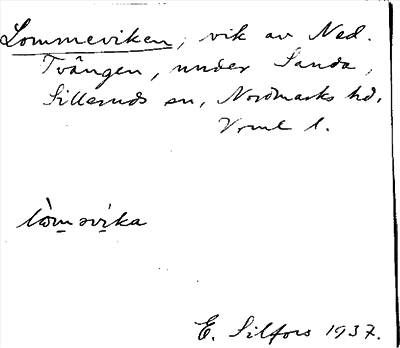 Lommeviken, vik av Ned.
Tvängen, under Sanda,
Silleruds sn, Nordmarks hd,
Vrml l.
lòmǝvi̇ka
E. Silfors 1937.